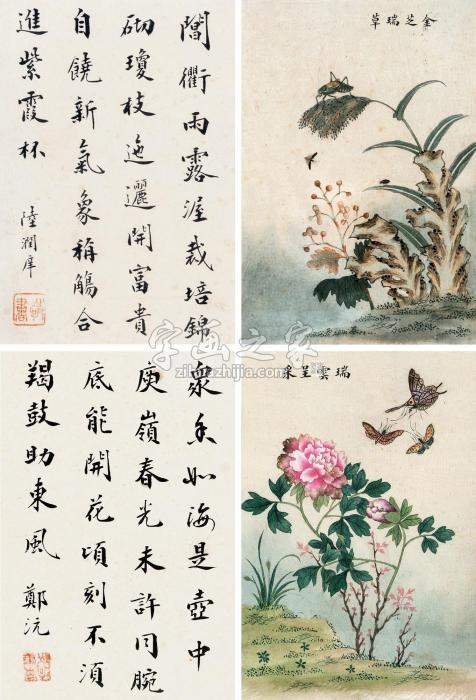 金芝瑞草
閶衢雨露渥栽培錦
砌瓊枝迤邐開富貴
自饒新氣象稱觴合
進紫霞杯
陸潤庠
字画之家
zihuazhijia.com
瑞雲呈采
眾香如海是壺中
庾嶺春光未許同腕
底能開花頃刻不須
羯鼓助東風 鄭沅